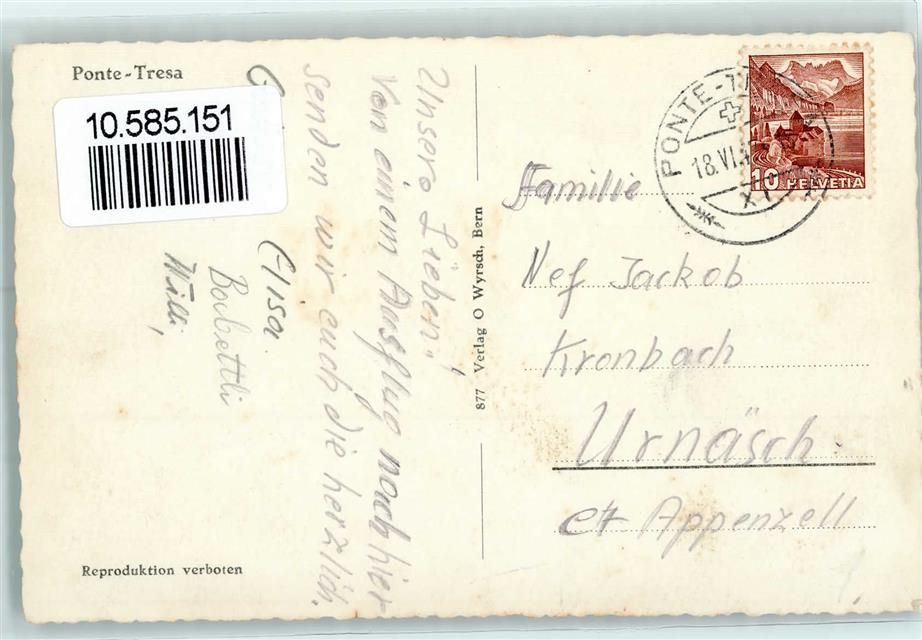 Ponte-Tresa
10.585.151
Unsere Lieben,
Von einem Ausflug noch hier
senden wir euch die herzlich.
G
Elisa
Babettli
Willi,
Reproduktion verboten
877 Verlag O Wyrsch, Bern
PONTE-T
18.VI.
10 HELVETIA
Familie
Nef Jackob
Kronbach
Urnäsch.
Ct Appenzell